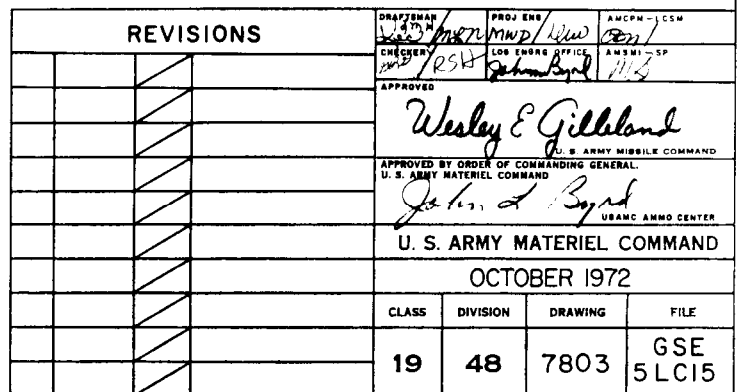 REVISIONS
DRAFTSMAN PROJ ENG AMCPM-LCSM
MWP
CHECKER LOG ENGRG OFFICE AMSMI-SP
RSH John Byrd
APPROVED
Wesley E Gilleland
U. S. ARMY MISSILE COMMAND
APPROVED BY ORDER OF COMMANDING GENERAL.
U. S. ARMY MATERIEL COMMAND
John L Byrd
USAMC AMMO CENTER
U. S. ARMY MATERIEL COMMAND
OCTOBER 1972
CLASS DIVISION DRAWING FILE
19 48 7803 GSE
5LC15